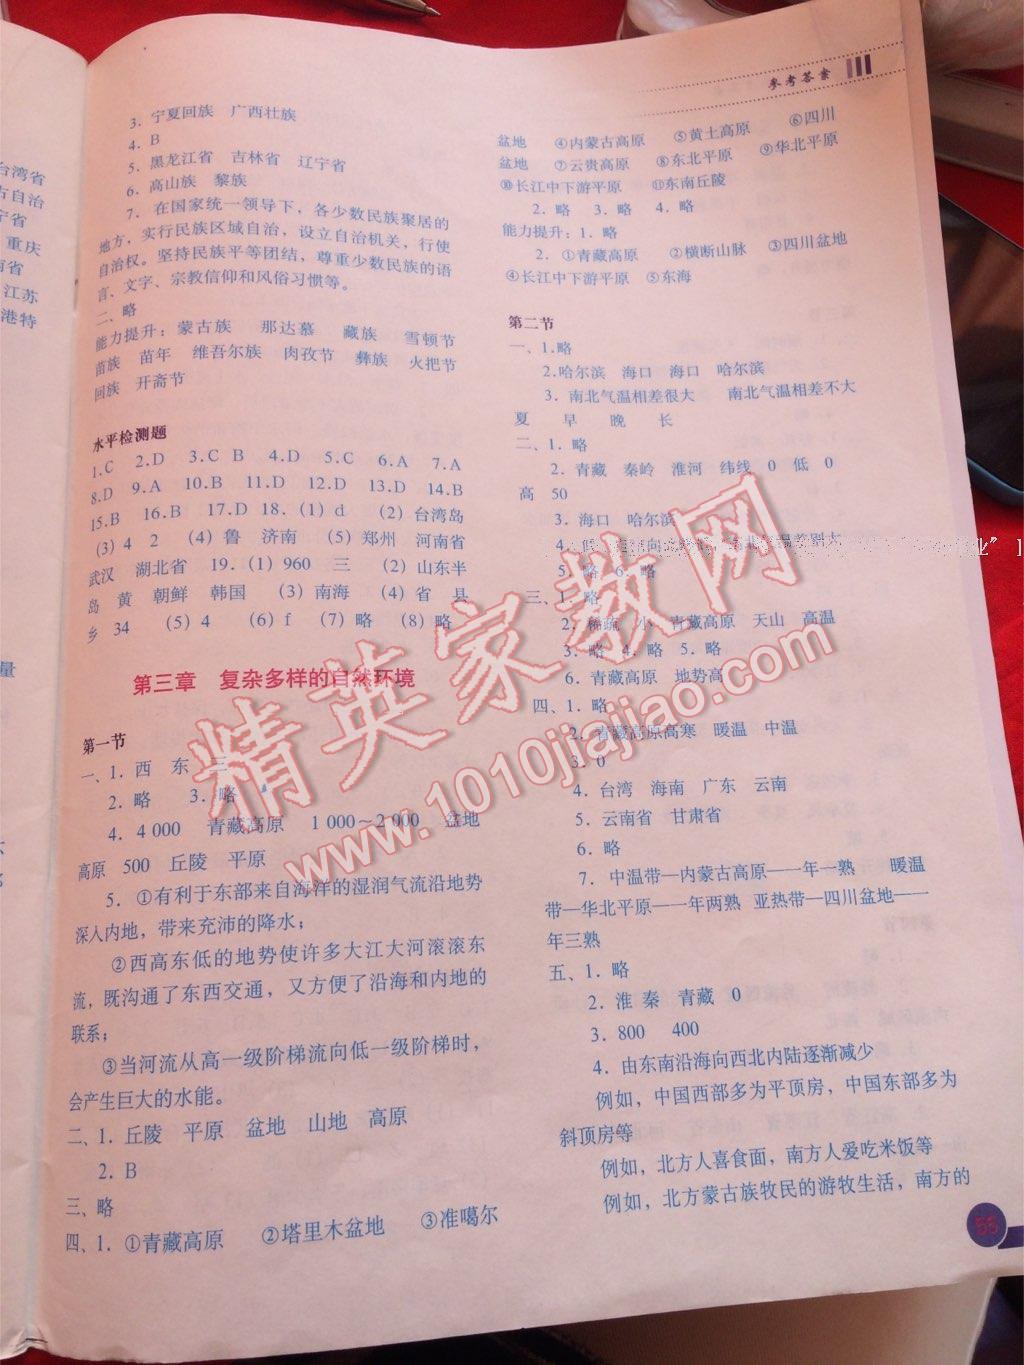 参考答案
台湾省
古自治
宁省
重庆
南省
江苏
港特
量
3. 宁夏回族 广西壮族
4. B
5. 黑龙江省 吉林省 辽宁省
6. 高山族 黎族
7. 在国家统一领导下，各少数民族聚居的
地方，实行民族区域自治，设立自治机关，行使
自治权。坚持民族平等团结，尊重少数民族的语
言、文字、宗教信仰和风俗习惯等。
二、略
能力提升：蒙古族 那达慕 藏族 雪顿节
苗族 苗年 维吾尔族 肉孜节 彝族 火把节
回族 开斋节
水平检测题
1.C 2.D 3.C B 4.D 5.C 6.A 7.A
8.D 9.A 10.B 11.D 12.D 13.D 14.B
15.B 16.B 17.D 18.（1）d （2）台湾岛
（3）4 2 （4）鲁 济南 （5）郑州 河南省
武汉 湖北省 19.（1）960 三 （2）山东半
岛 黄 朝鲜 韩国 （3）南海 （4）省 县
乡 34 （5）4 （6）f （7）略 （8）略
第三章 复杂多样的自然环境
第一节
一、1. 西 东 三
2. 略 3. 略
4. 4 000 青藏高原 1 000～2 000 盆地
高原 500 丘陵 平原
5. ①有利于东部来自海洋的湿润气流沿地势
深入内地，带来充沛的降水；
②西高东低的地势使许多大江大河滚滚东
流，既沟通了东西交通，又方便了沿海和内地的
联系；
③当河流从高一级阶梯流向低一级阶梯时，
会产生巨大的水能。
二、1. 丘陵 平原 盆地 山地 高原
2. B
三、略
四、1. ①青藏高原 ②塔里木盆地 ③准噶尔
盆地 ④内蒙古高原 ⑤黄土高原 ⑥四川
盆地 ⑦云贵高原 ⑧东北平原 ⑨华北平原
⑩长江中下游平原 ⑪东南丘陵
2. 略 3. 略 4. 略
能力提升：1. 略
2. ①青藏高原 ②横断山脉 ③四川盆地
④长江中下游平原 ⑤东海
第二节
一、1. 略
2. 哈尔滨 海口 海口 哈尔滨
3. 南北气温相差很大 南北气温相差不大
夏 早 晚 长
二、1. 略
2. 青藏 秦岭 淮河 纬线 0 低 0
高 50
3. 海口 哈尔滨
4. 低
5. 略 6. 略
三、1. 略
2. 稀疏 小 青藏高原 天山 高温
3. 略 4. 略 5. 略
6. 青藏高原 地势高
四、1. 略
2. 青藏高原高寒 暖温 中温
3. 0
4. 台湾 海南 广东 云南
5. 云南省 甘肃省
6. 略
7. 中温带—内蒙古高原—一年一熟 暖温
带—华北平原—一年两熟 亚热带—四川盆地—一
年三熟
五、1. 略
2. 淮 秦 青藏 0
3. 800 400
4. 由东南沿海向西北内陆逐渐减少
例如，中国西部多为平顶房，中国东部多为
斜顶房等
例如，北方人喜食面，南方人爱吃米饭等
例如，北方蒙古族牧民的游牧生活，南方的
55
精英家教网
www.1010jiajiao.com